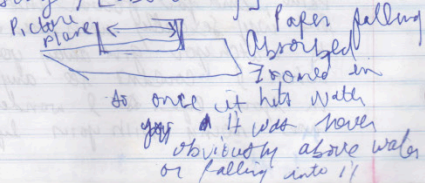 Picture Plane
Paper falling
Absorbed
Zoomed in
so once it hits water
it was never
obviously above water
or falling into it